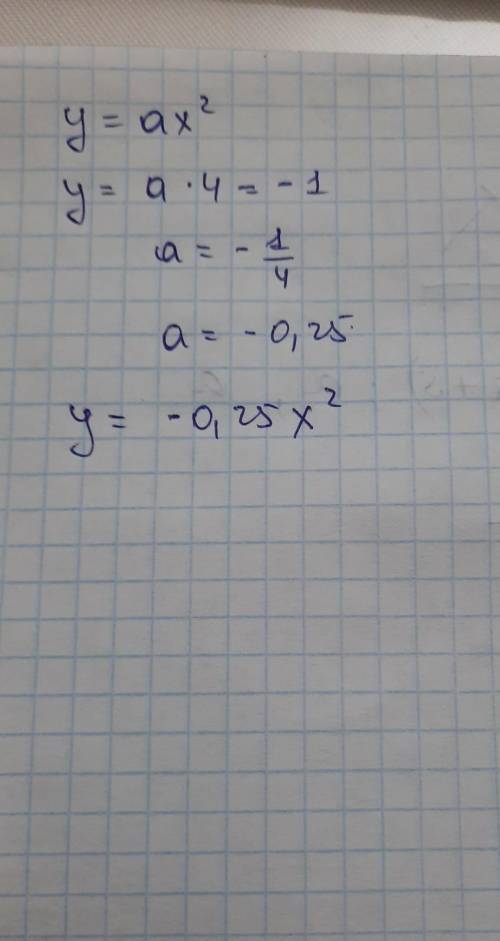 y = ax²
y = a · 4 = - 1
a = - 1/4
a = - 0,25
y = -0,25x²